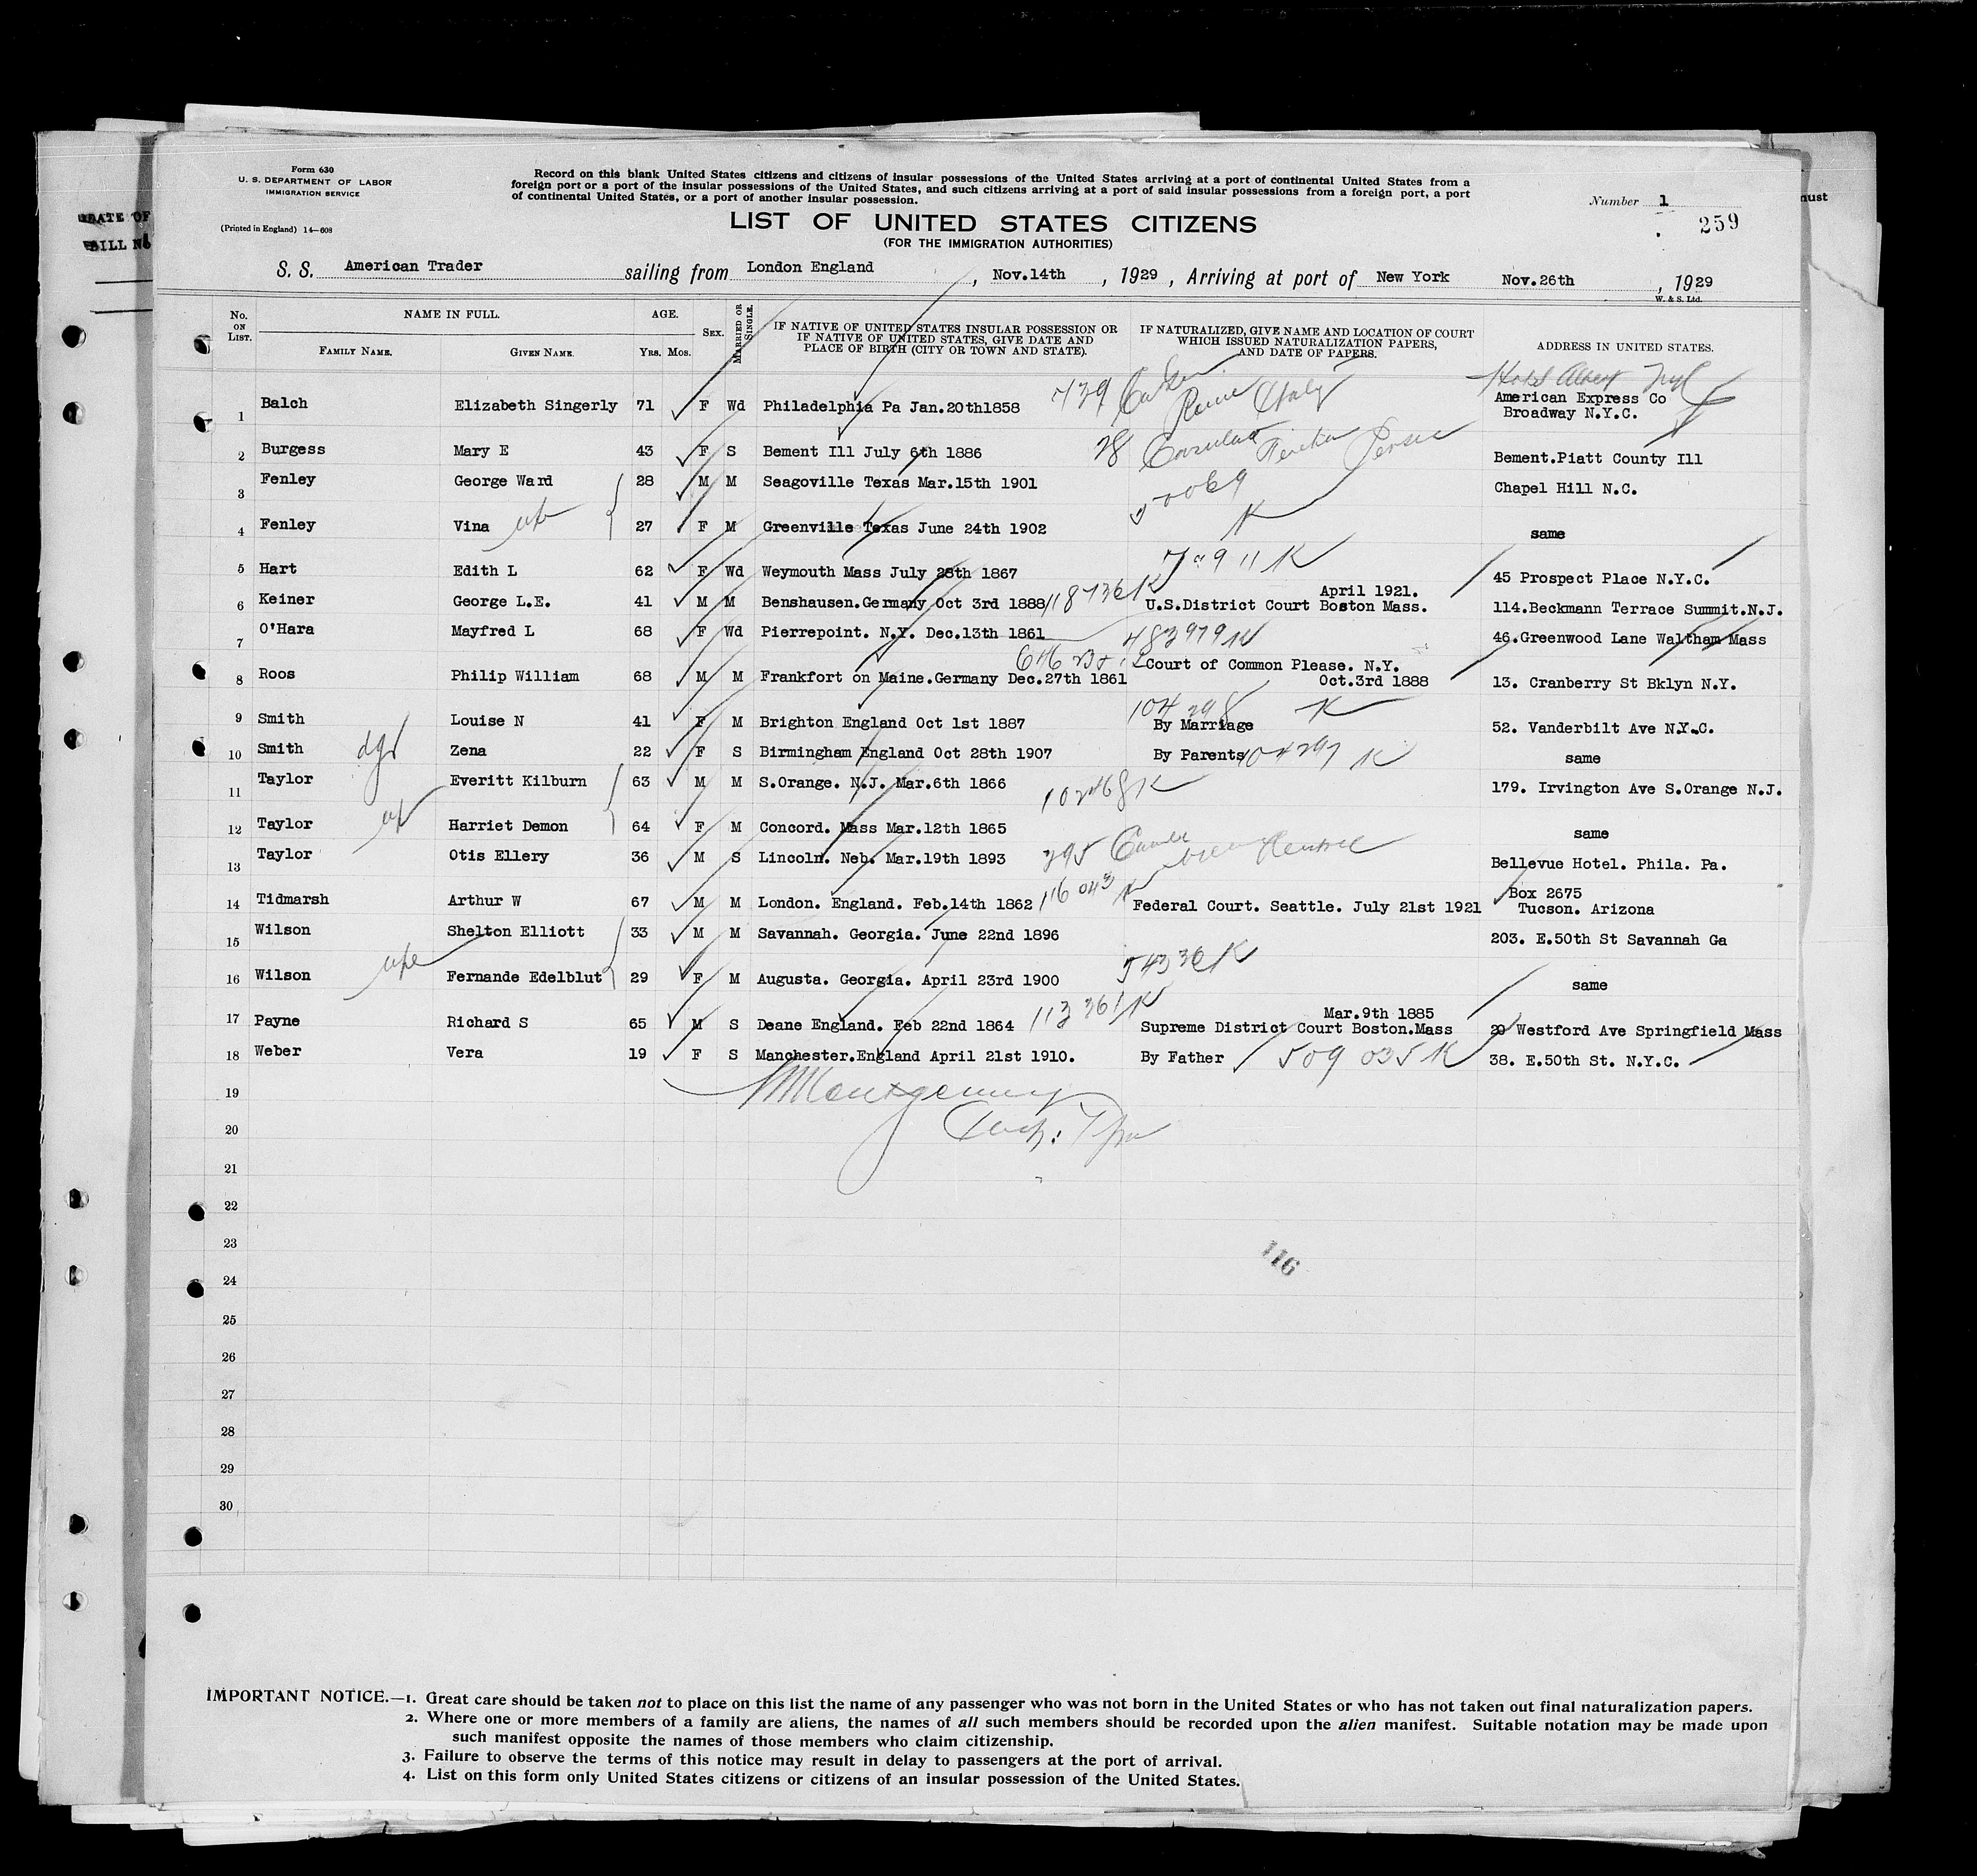 Form 630
U. S. DEPARTMENT OF LABOR
IMMIGRATION SERVICE
(Printed in England) 14—608
Record on this blank United States citizens and citizens of insular possessions of the United States arriving at a port of continental United States from a
foreign port or a port of the insular possessions of the United States, and such citizens arriving at a port of said insular possessions from a foreign port, a port
of continental United States, or a port of another insular possession.
Number 1
259
nust
DATE OF
BILL No
LIST OF UNITED STATES CITIZENS
(FOR THE IMMIGRATION AUTHORITIES)
S. S. American Trader sailing from London England, Nov.14th, 1929, Arriving at port of New York Nov.26th, 1929
W. & S. Ltd.
No. ON LIST. NAME IN FULL. AGE. SEX. MARRIED OR SINGLE.
FAMILY NAME. GIVEN NAME. YRS. MOS.
IF NATIVE OF UNITED STATES INSULAR POSSESSION OR
IF NATIVE OF UNITED STATES, GIVE DATE AND
PLACE OF BIRTH (CITY OR TOWN AND STATE).
IF NATURALIZED, GIVE NAME AND LOCATION OF COURT
WHICH ISSUED NATURALIZATION PAPERS,
AND DATE OF PAPERS.
ADDRESS IN UNITED STATES.
739 Rome Italy
1 Balch Elizabeth Singerly 71 F Wd Philadelphia Pa Jan.20th1858 American Express Co
Broadway N.Y.C.
28 Persia
2 Burgess Mary E 43 F S Bement Ill July 6th 1886 Bement.Piatt County Ill
3 Fenley George Ward 28 M M Seagoville Texas Mar.15th 1901 Chapel Hill N.C.
4 Fenley Vina 27 F M Greenville Texas June 24th 1902 K same
5 Hart Edith L 62 F Wd Weymouth Mass July 28th 1867 45 Prospect Place N.Y.C.
April 1921.
6 Keiner George L.E. 41 M M Benshausen.Germany Oct 3rd 1888 118736K U.S.District Court Boston Mass. 114.Beckmann Terrace Summit.N.J.
7 O'Hara Mayfred L 68 F Wd Pierrepoint. N.Y. Dec.13th 1861 483979K 46.Greenwood Lane Waltham Mass
Court of Common Please. N.Y.
8 Roos Philip William 68 M M Frankfort on Maine.Germany Dec.27th 1861 Oct.3rd 1888 13. Cranberry St Bklyn N.Y.
9 Smith Louise N 41 F M Brighton England Oct 1st 1887 104298 K By Marriage 52. Vanderbilt Ave N.Y.C.
10 Smith dgt Zena 22 F S Birmingham England Oct 28th 1907 By Parents 104297 K same
11 Taylor Everitt Kilburn 63 M M S.Orange. N.J. Mar.6th 1866 102468K 179. Irvington Ave S.Orange N.J.
12 Taylor Harriet Demon 64 F M Concord. Mass Mar.12th 1865 same
13 Taylor Otis Ellery 36 M S Lincoln. Neb. Mar.19th 1893 295 Bellevue Hotel. Phila. Pa.
Box 2675
14 Tidmarsh Arthur W 67 M M London. England. Feb.14th 1862 116043 K Federal Court. Seattle. July 21st 1921 Tucson. Arizona
15 Wilson Shelton Elliott 33 M M Savannah. Georgia. June 22nd 1896 203. E.50th St Savannah Ga
16 Wilson Fernande Edelblut 29 F M Augusta. Georgia. April 23rd 1900 54336K same
Mar.9th 1885
17 Payne Richard S 65 M S Deane England. Feb 22nd 1864 113361K Supreme District Court Boston.Mass 20 Westford Ave Springfield Mass
18 Weber Vera 19 F S Manchester.England April 21st 1910. By Father 509035K 38. E.50th St. N.Y.C.
19 Montgomery
20
21
22
23
116
24
25
26
27
28
29
30
IMPORTANT NOTICE.—1. Great care should be taken not to place on this list the name of any passenger who was not born in the United States or who has not taken out final naturalization papers.
2. Where one or more members of a family are aliens, the names of all such members should be recorded upon the alien manifest. Suitable notation may be made upon
such manifest opposite the names of those members who claim citizenship.
3. Failure to observe the terms of this notice may result in delay to passengers at the port of arrival.
4. List on this form only United States citizens or citizens of an insular possession of the United States.